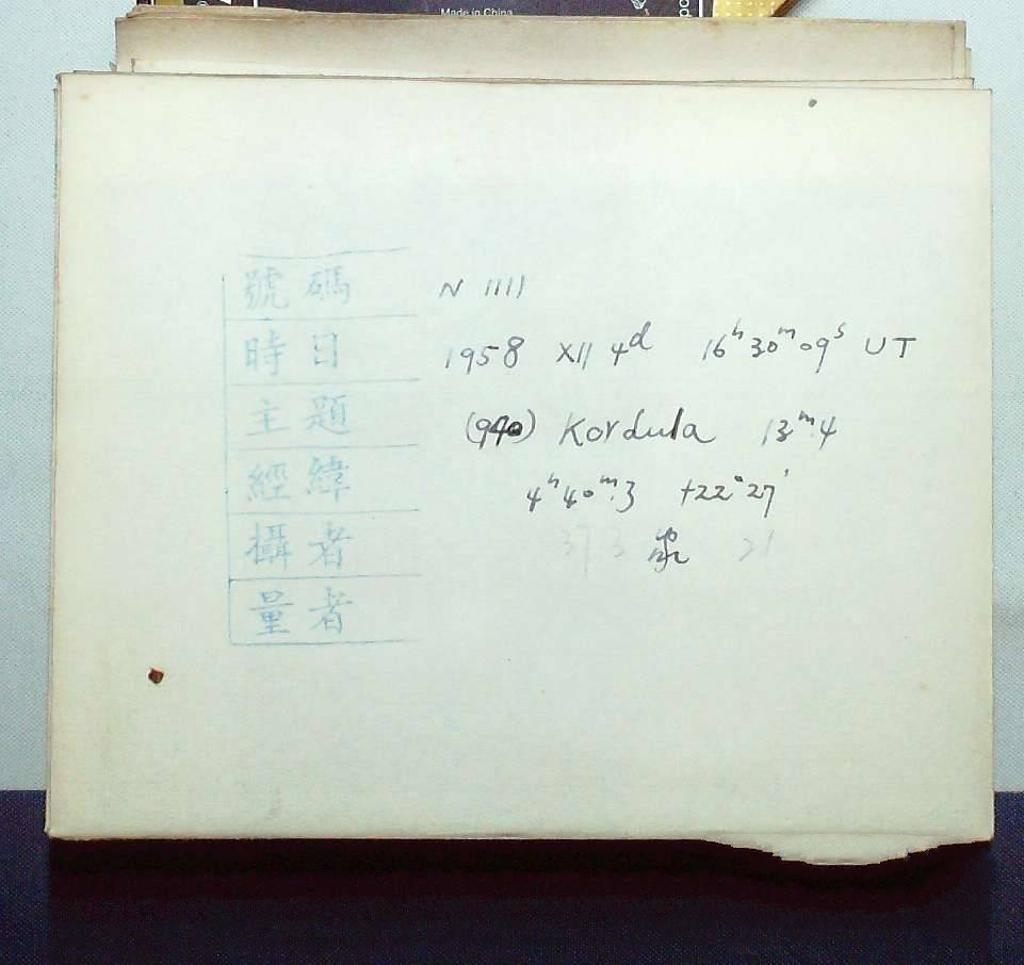 Made in China
號碼 N 1111
時日 1958 XII 4ᵈ 16ʰ 30ᵐ 09ˢ UT
主題 (940) Kordula 13ᵐ.4
經緯 4ʰ 40ᵐ.3 +22° 27'
攝者
量者